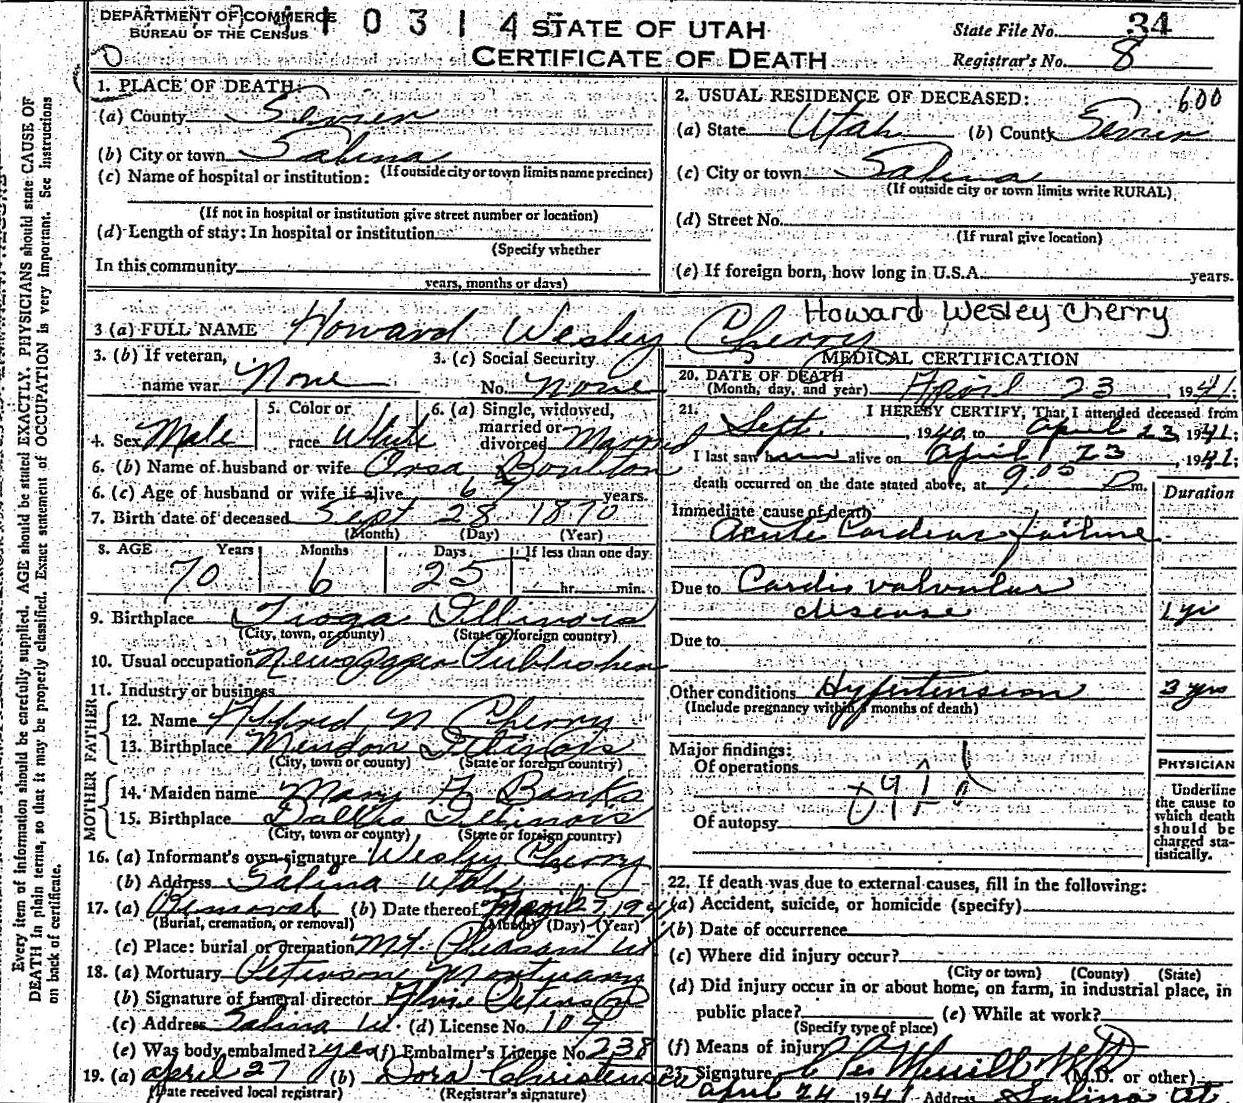 DEPARTMENT OF COMMERCE
BUREAU OF THE CENSUS
10314 STATE OF UTAH
CERTIFICATE OF DEATH
State File No. 34
Registrar's No. 8
Every item of information should be carefully supplied. AGE should be stated EXACTLY. PHYSICIANS should state CAUSE OF
DEATH in plain terms, so that it may be properly classified. Exact statement of OCCUPATION is very important. See instructions
on back of certificate.
1. PLACE OF DEATH:
(a) County Sevier
(b) City or town Salina
(If outside city or town limits name precinct)
(c) Name of hospital or institution:
(If not in hospital or institution give street number or location)
(d) Length of stay: In hospital or institution
(Specify whether
In this community
years, months or days)
2. USUAL RESIDENCE OF DECEASED: 600
(a) State Utah (b) County Sevier
(c) City or town Salina
(If outside city or town limits write RURAL)
(d) Street No.
(If rural give location)
(e) If foreign born, how long in U.S.A. years.
3 (a) FULL NAME Howard Wesley Cherry
Howard Wesley Cherry
3. (b) If veteran,
name war None
3. (c) Social Security
No. None
4. Sex Male
5. Color or
race White
6. (a) Single, widowed,
married or
divorced Married
6. (b) Name of husband or wife Orsa Boulton
6. (c) Age of husband or wife if alive years.
7. Birth date of deceased Sept 28 1870
(Month) (Day) (Year)
8. AGE Years Months Days If less than one day
70 6 25 hr. min.
9. Birthplace Tioga Illinois
(City, town, or county) (State or foreign country)
10. Usual occupation Newspaper Publisher
11. Industry or business
FATHER
12. Name Alfred N Cherry
13. Birthplace Mendon Illinois
(City, town or county) (State or foreign country)
MOTHER
14. Maiden name Mary F Banks
15. Birthplace Dallas Illinois
(City, town or county) (State or foreign country)
16. (a) Informant's own signature Wesley Cherry
(b) Address Salina Utah
17. (a) Removal (b) Date thereof April 27, 1941
(Burial, cremation, or removal) (Month) (Day) (Year)
(c) Place: burial or cremation Mt. Pleasant Ut
18. (a) Mortuary Peterson Mortuary
(b) Signature of funeral director
(c) Address Salina Ut. (d) License No. 104
(e) Was body embalmed? yes (f) Embalmer's License No. 238
19. (a) April 27 (b) Dora Christensen
(Date received local registrar) (Registrar's signature)
MEDICAL CERTIFICATION
20. DATE OF DEATH
(Month, day, and year) April 23, 1941;
21. I HEREBY CERTIFY, That I attended deceased from
Sept., 1940, to April 23, 1941;
I last saw him alive on April 23, 1941;
death occurred on the date stated above, at 9:05 P m.
Duration
Immediate cause of death
Acute Cardiac failure
Due to Cardio valvular
disease 1 yr
Due to
Other conditions Hypertension 3 yrs
(Include pregnancy within 3 months of death)
Major findings:
Of operations
Of autopsy
PHYSICIAN
Underline
the cause to
which death
should be
charged sta-
tistically.
22. If death was due to external causes, fill in the following:
(a) Accident, suicide, or homicide (specify)
(b) Date of occurrence
(c) Where did injury occur?
(City or town) (County) (State)
(d) Did injury occur in or about home, on farm, in industrial place, in
public place? (e) While at work?
(Specify type of place)
(f) Means of injury
23. Signature Merrill MD (M.D. or other)
April 24 1941 Address Salina Ut.